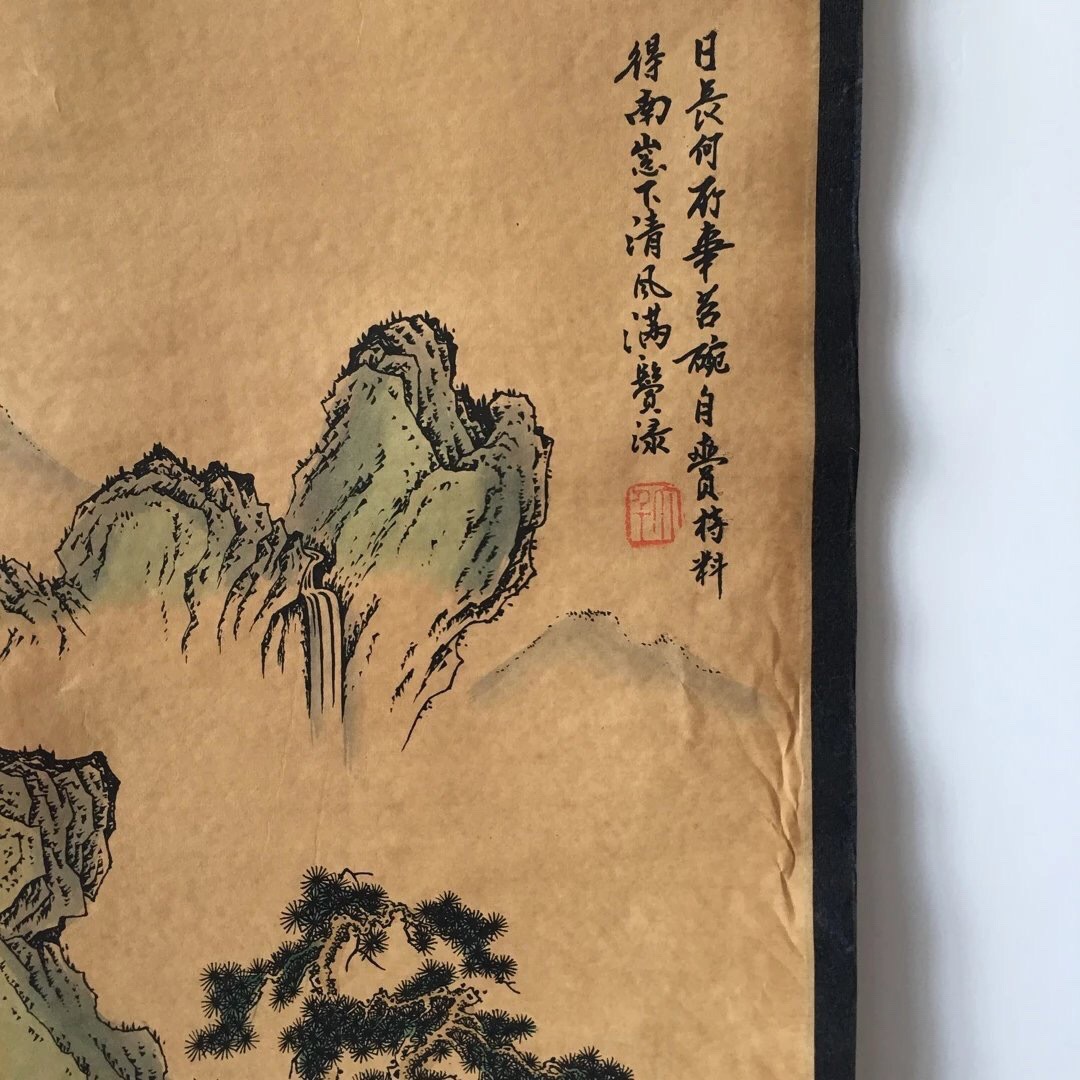 日長何所事茗碗自賫持料
得南窓下清風滿鬢絲